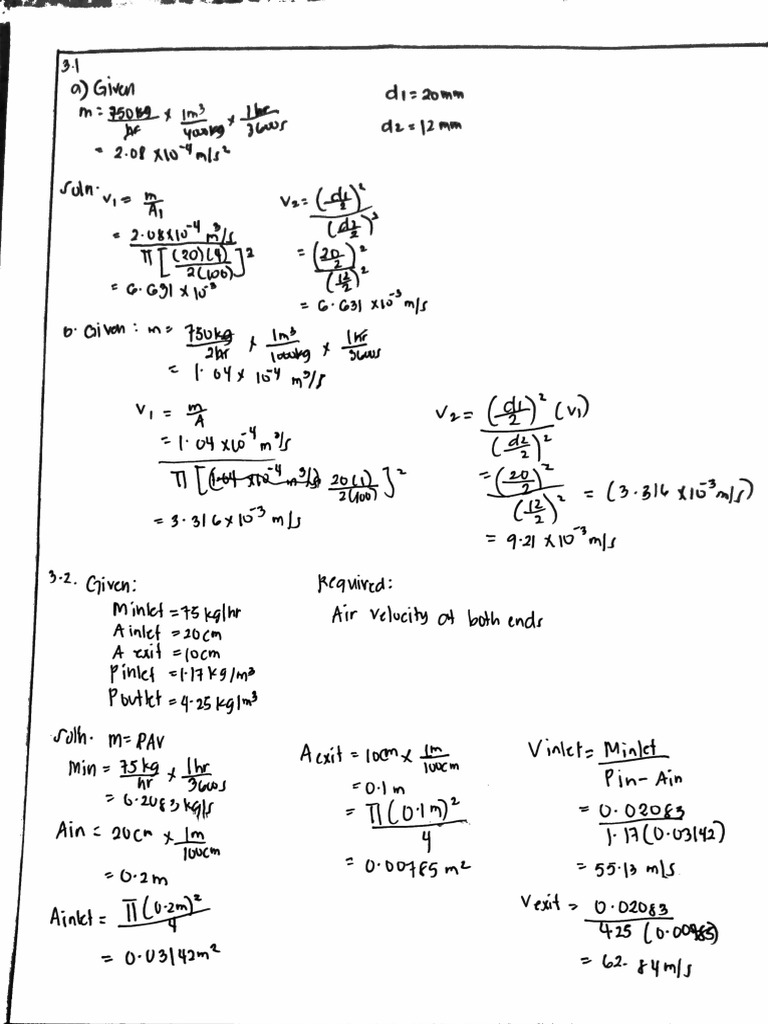 3.1
a) Given
m = 750kg/hr x 1m³/1000kg x 1hr/3600s
d1 = 20mm
= 2.08 x10⁻⁴ m/s²
d2 = 12mm
Soln. V1 = m/A1
= 2.08x10⁻⁴ m³/s / π[(20)(1)/2(100)]²
= 6.631 x 10⁻³
V2 = (d1/2)² / (d2/2)²
= (20/2)² / (12/2)²
= 6.631 x10⁻³ m/s
b. Given: m = 750kg/2hr x 1m³/1000kg x 1hr/3600s
= 1.04 x 10⁻⁴ m³/s
V1 = m/A
= 1.04 x10⁻⁴ m³/s / π[20(1)/2(100)]²
= 3.316 x10⁻³ m/s
V2 = (d1/2)² (V1) / (d2/2)²
= (20/2)² / (12/2)² = (3.316 x10⁻³ m/s)
= 9.21 x10⁻³ m/s
3.2. Given:
Minlet = 75 kg/hr
A inlet = 20cm
A exit = 10cm
Pinlet = 1.17 kg/m³
Poutlet = 4.25 kg/m³
Required:
Air velocity at both ends
Soln. m = PAV
Min = 75kg/hr x 1hr/3600s
= 0.2083 kg/s
Ain = 20cm x 1m/100cm
= 0.2m
Ainlet = π(0.2m)²/4
= 0.03142m²
A exit = 10cm x 1m/100cm
= 0.1 m
= π(0.1m)²/4
= 0.00785 m²
Vinlet = Minlet / Pin - Ain
= 0.02083 / 1.17(0.03142)
= 55.13 m/s
Vexit = 0.02083 / 425
= 62.84 m/s